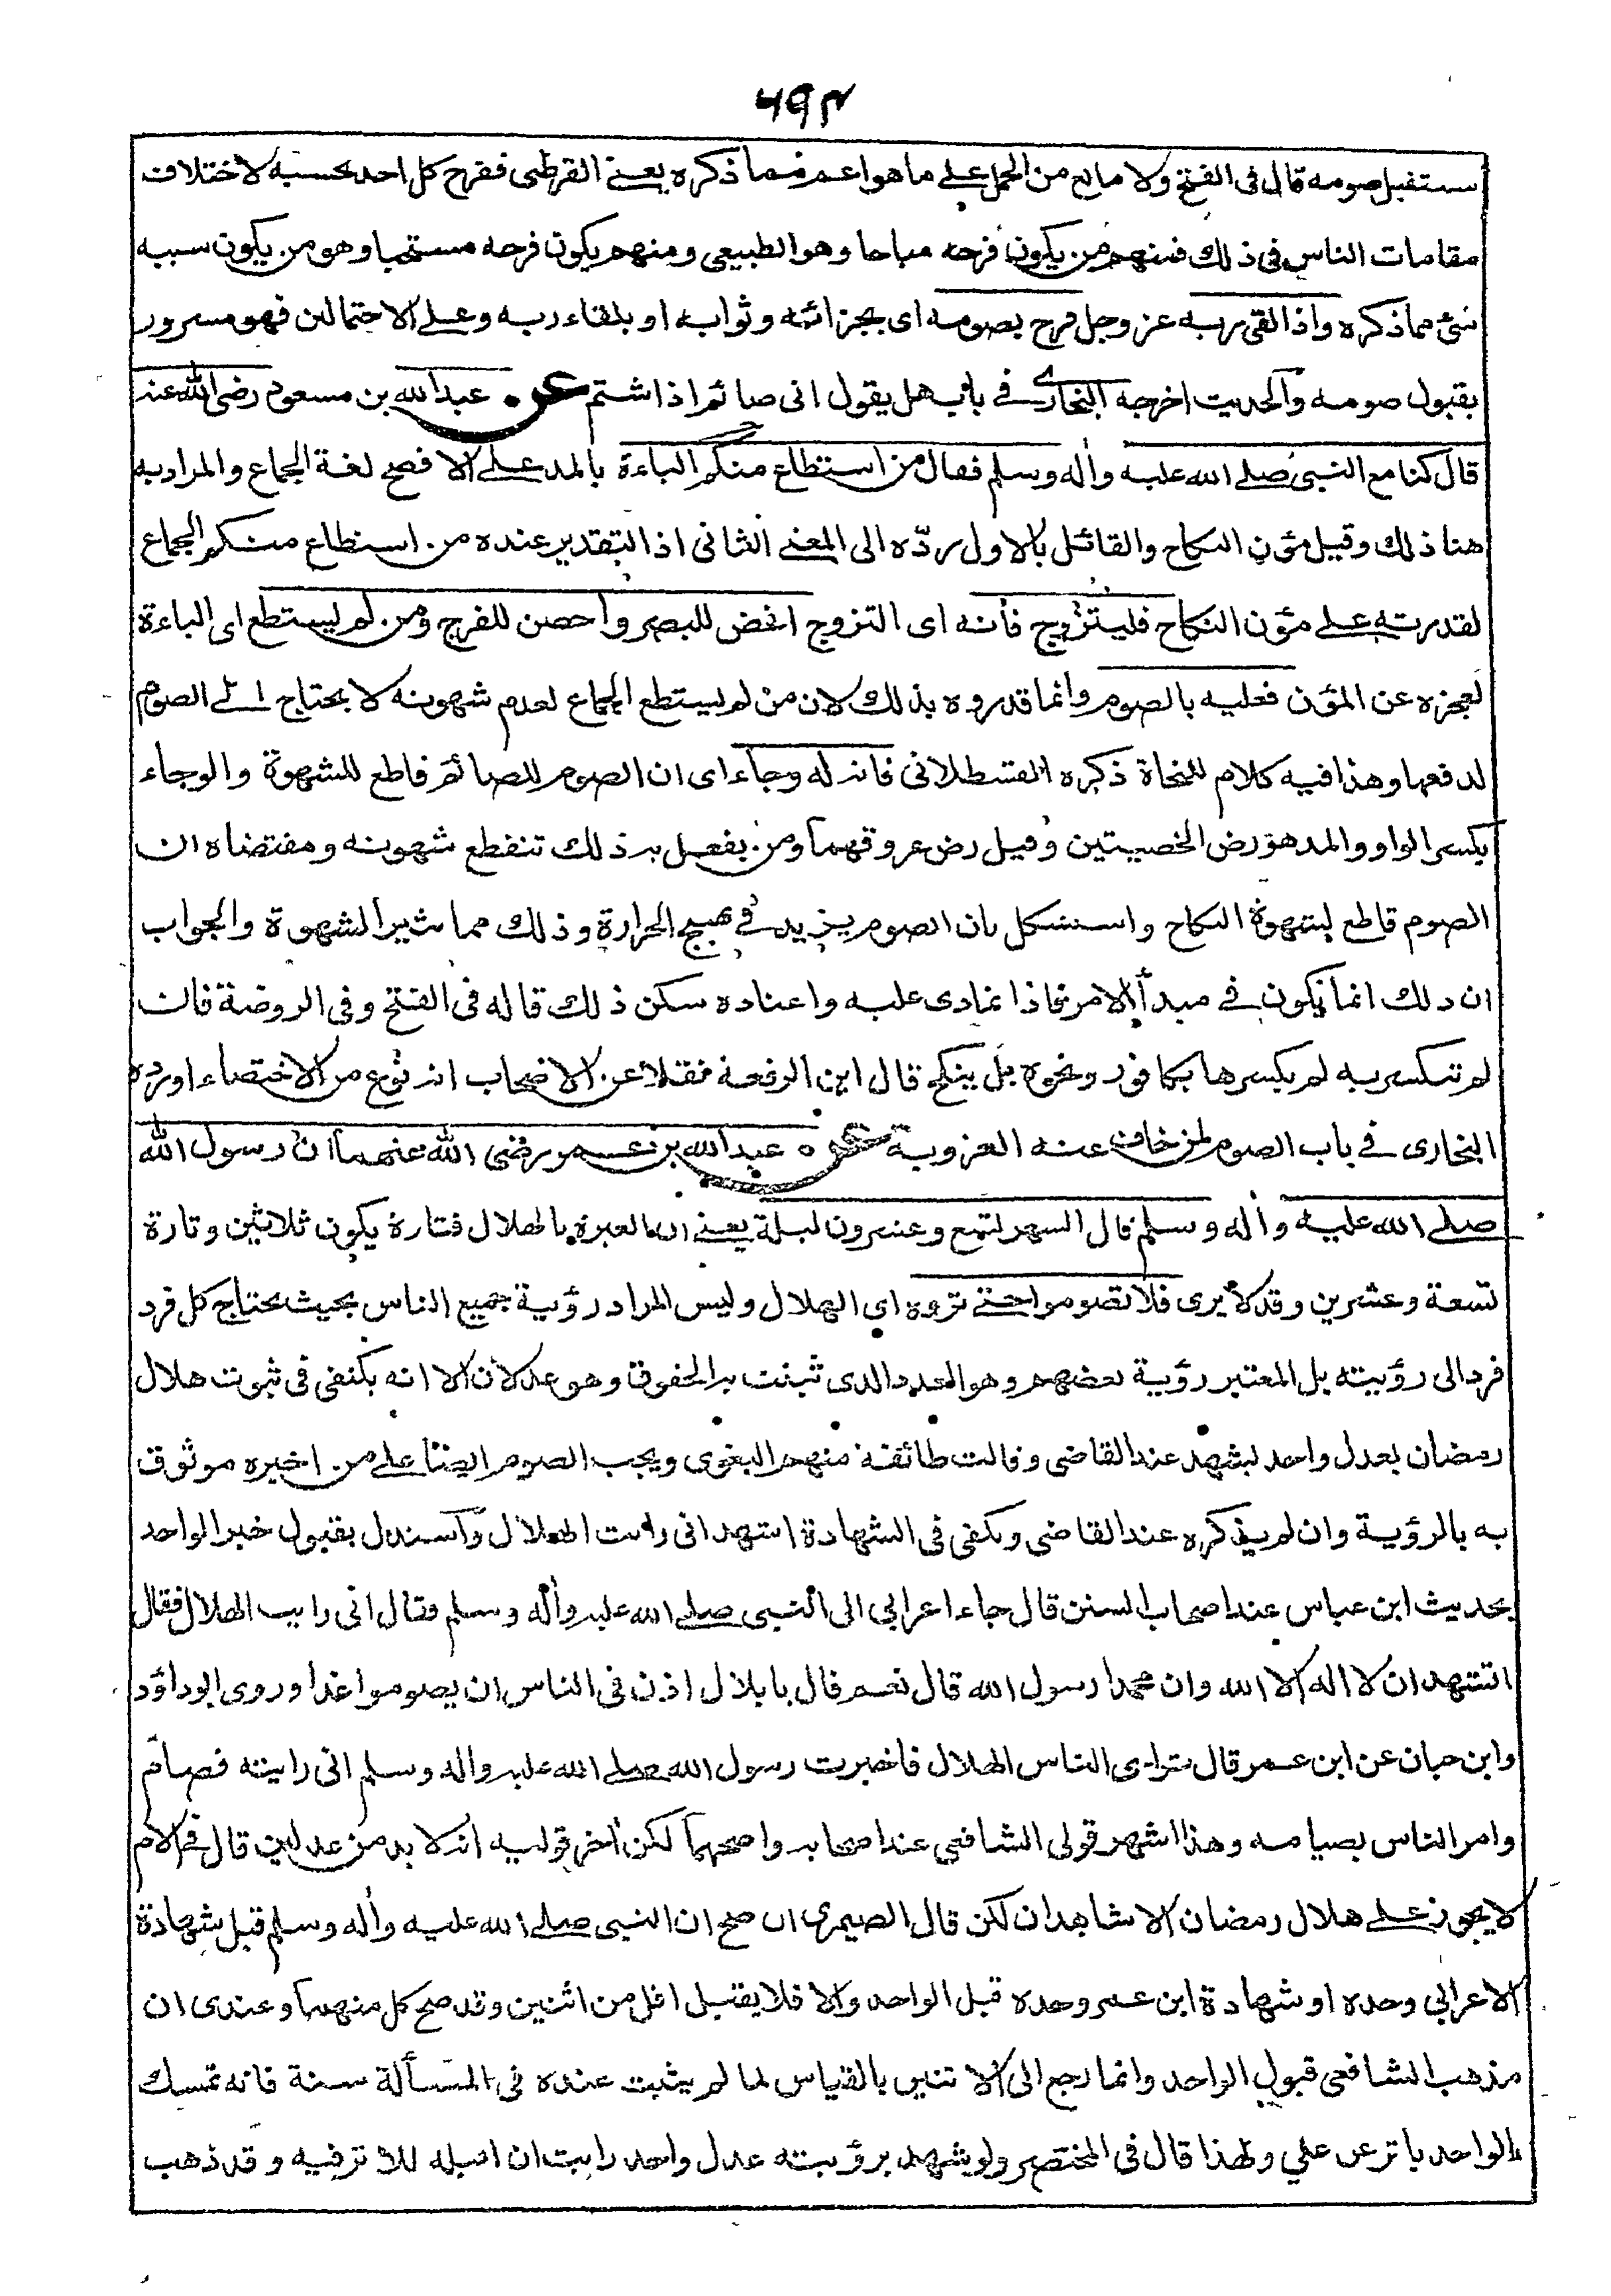 ٦٩٣
مستقبل صومه قال فى الفتح ولا مانع من الحمل على ما هو اعم مما ذكره يعنى القرطبى ففرح كل احد بحسبه لاختلاف
مقامات الناس فى ذلك فمنهم من يكون فرحه مباحا وهو الطبيعى ومنهم يكون فرحه مستحبا وهو من يكون سببه
شئ مما ذكره واذا لقى ربه عز وجل فرح بصومه اى بجزائه وثوابه او بلقاء ربه وعلى الاحتمالين فهو مسرور
بقبول صومه والحديث اخرجه البخارى فى باب هل يقول انى صائم اذا شتم عن عبد الله بن مسعود رضى الله عنه
قال كنا مع النبى صلى الله عليه واله وسلم فقال من استطاع منكم الباءة بالمد على الافصح لغة الجماع والمراد به
هنا ذلك وقيل مؤن النكاح والقائل بالاول ردّه الى المعنى الثانى اذ التقدير عنده من استطاع منكم الجماع
لقدرته على مؤن النكاح فليتزوج فانه اى التزوج اغض للبصر واحصن للفرج ومن لم يستطع اى الباءة
لعجزه عن المؤن فعليه بالصوم وانما قدروه بذلك لان من لم يستطع الجماع لعدم شهوته لا يحتاج الى الصوم
لدفعها وهذا فيه كلام للنحاة ذكره القسطلانى فانه له وجاء اى ان الصوم للصائم قاطع للشهوة والوجاء
بكسر الواو والمد هو رض الخصيتين وقيل رض عروقهما ومن يفعل به ذلك تنقطع شهوته ومقتضاه ان
الصوم قاطع لشهوة النكاح واستشكل بان الصوم يزيد فى تهييج الحرارة وذلك مما يثير الشهوة والجواب
ان ذلك انما يكون فى مبدأ الامر فاذا تمادى عليه واعتاده سكن ذلك قاله فى الفتح وفى الروضة فان
لم تنكسر به لم يكسرها بكافور ونحوه بل ينكح قال ابن الرفعة نقلا عن الاصحاب انه نوع من الاختصاء اورده
البخارى فى باب الصوم لمن خاف عنه العزوبة عن عبد الله بن عمر رضى الله عنهما ان رسول الله
صلى الله عليه واله وسلم قال الشهر تسع وعشرون ليلة يعنى ان العبرة بالهلال فتارة يكون ثلاثين وتارة
تسعة وعشرين وقد لا يرى فلا تصوموا حتى تروه اى الهلال وليس المراد رؤية جميع الناس بحيث يحتاج كل فرد
فرد الى رؤيته بل المعتبر رؤية بعضهم وهو العدد الذى تثبت به الحقوق وهو عدلان الا انه يكتفى فى ثبوت هلال
رمضان بعدل واحد يشهد عند القاضى وقالت طائفة منهم البغوى ويجب الصوم ايضا على من اخبره موثوق
به بالرؤية وان لم يذكره عند القاضى ويكفى فى الشهادة اشهد انى رايت الهلال واستدل بقبول خبر الواحد
بحديث ابن عباس عند اصحاب السنن قال جاء اعرابى الى النبى صلى الله عليه واله وسلم فقال انى رايت الهلال فقال
اتشهد ان لا اله الا الله وان محمدا رسول الله قال نعم قال يا بلال اذن فى الناس ان يصوموا غدا وروى ابو داؤد
وابن حبان عن ابن عمر قال تراءى الناس الهلال فاخبرت رسول الله صلى الله عليه واله وسلم انى رايته فصام
وامر الناس بصيامه وهذا اشهر قولى الشافعى عند اصحابه واصحهما لكن اخر قوليه انه لا بد من عدلين قال فى الام
لا يجوز على هلال رمضان الا شاهدان لكن قال الصيمرى ان صح ان النبى صلى الله عليه واله وسلم قبل شهادة
الاعرابى وحده او شهادة ابن عمر وحده قبل الواحد والا فلا يقبل اقل من اثنين وقد صح كل منهما وعندى ان
مذهب الشافعى قبول الواحد وانما رجع الى الاثنين بالقياس لما لم يثبت عنده فى المسألة سنة فانه تمسك
للواحد باثر عن علي ولهذا قال فى المختصر ولو شهد برؤيته عدل واحد رايت ان اقبله للاثر فيه وقد ذهب